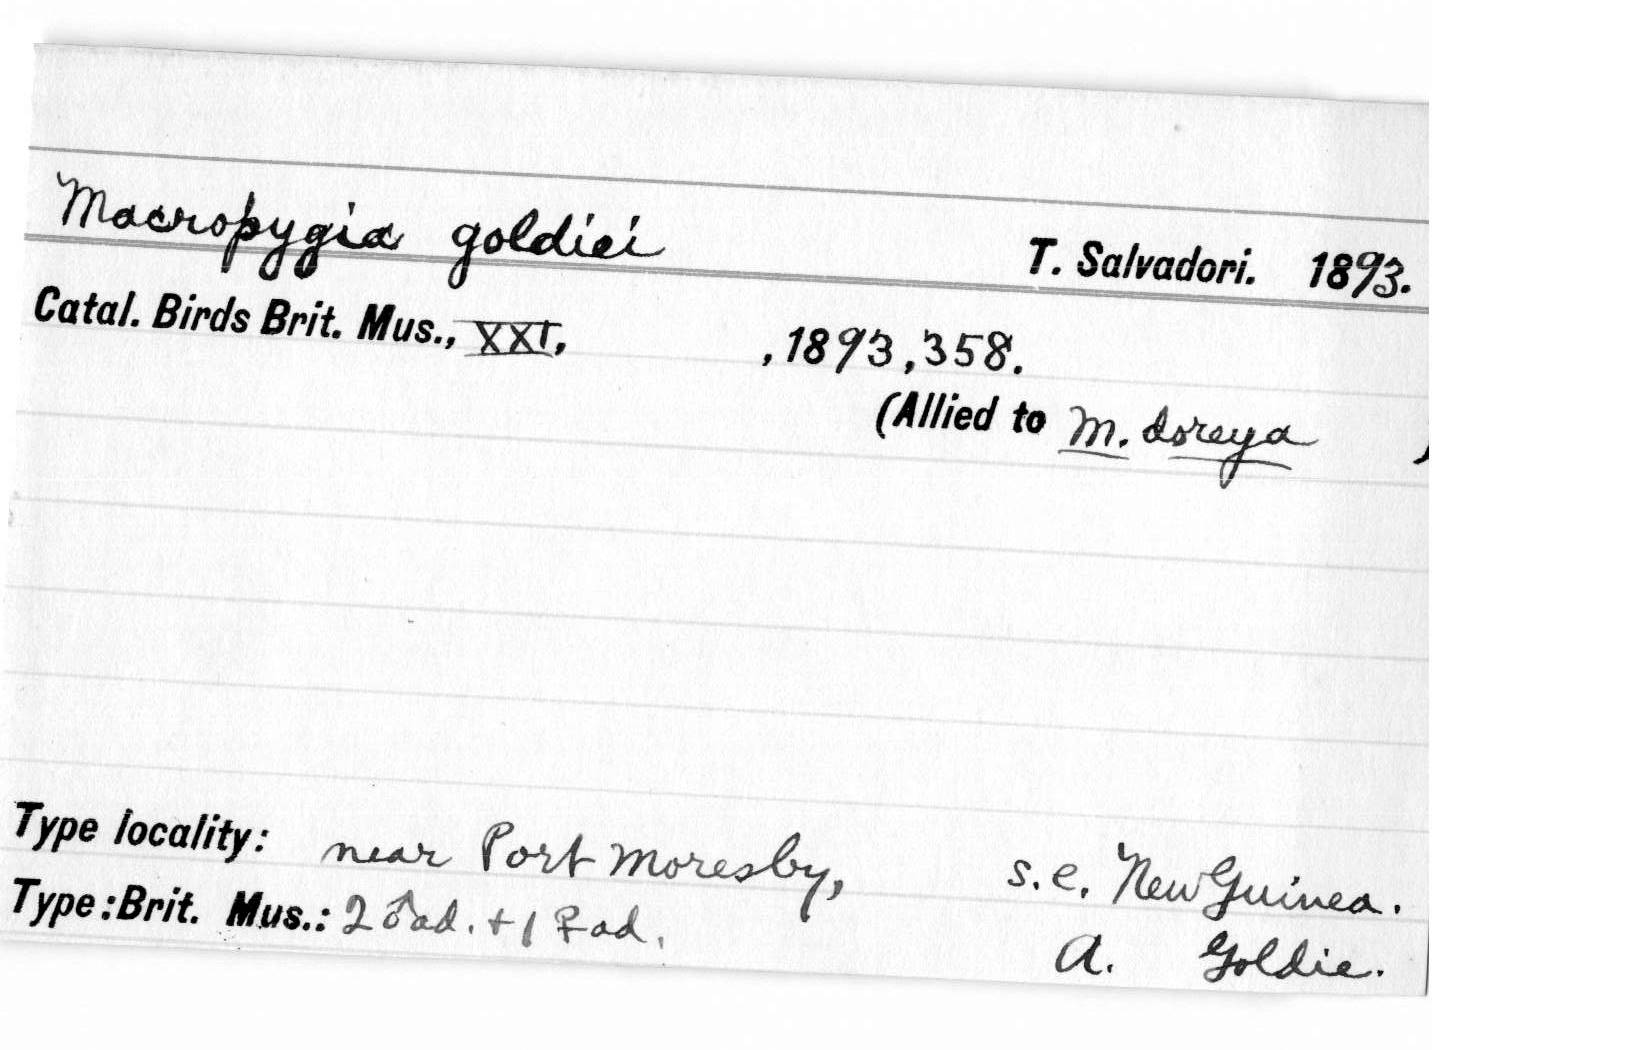 Macropygia goldiei T. Salvadori. 1893.
Catal. Birds Brit. Mus., XXI, , 1893, 358.
(Allied to M. doreya )
Type locality: near Port Moresby, s.e. New Guinea.
Type: Brit. Mus.: 2 ♂ ad. + 1 ♀ ad. A. Goldie.